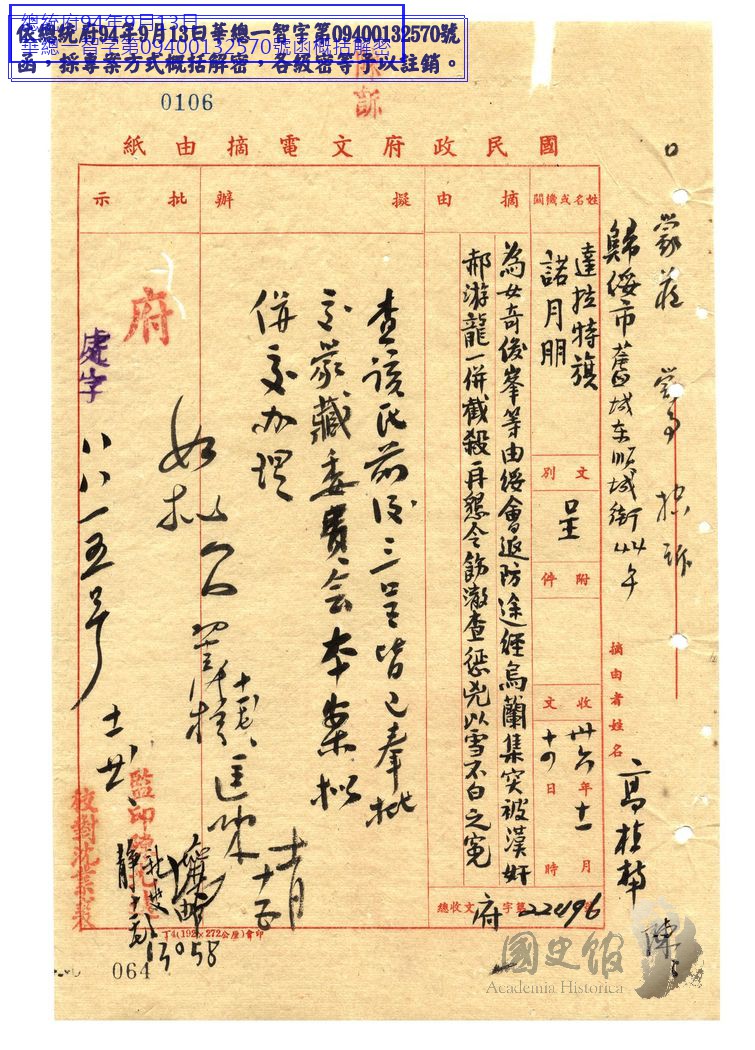 總統府94年9月13日
華總一智字第09400132570號函概括解密
依總統府94年9月13日華總一智字第09400132570號
函，採專案方式概括解密，各級密等予以註銷。
0106
國民政府文電摘由紙
歸綏市舊城東順城街44号
摘由者姓名
姓名或機關
達拉特旗
諾月朋
文別
呈
附件
收文
卅六年十一月
十四日
時
摘由
為女奇俊峯等由綏會返防途經烏蘭集突被漢奸
郝游龍一併截殺再懇令飭澈查懲兇以雪不白之冤
總收文
府字第22496號
擬辦
查該氏前後三呈皆已奉批
交蒙藏委員會本案擬
併交辦理
批示
如擬
府
處字
八八一五号
監印
校對沈業
丁4(192×272公厘)會印
064
國史館
Academia Historica